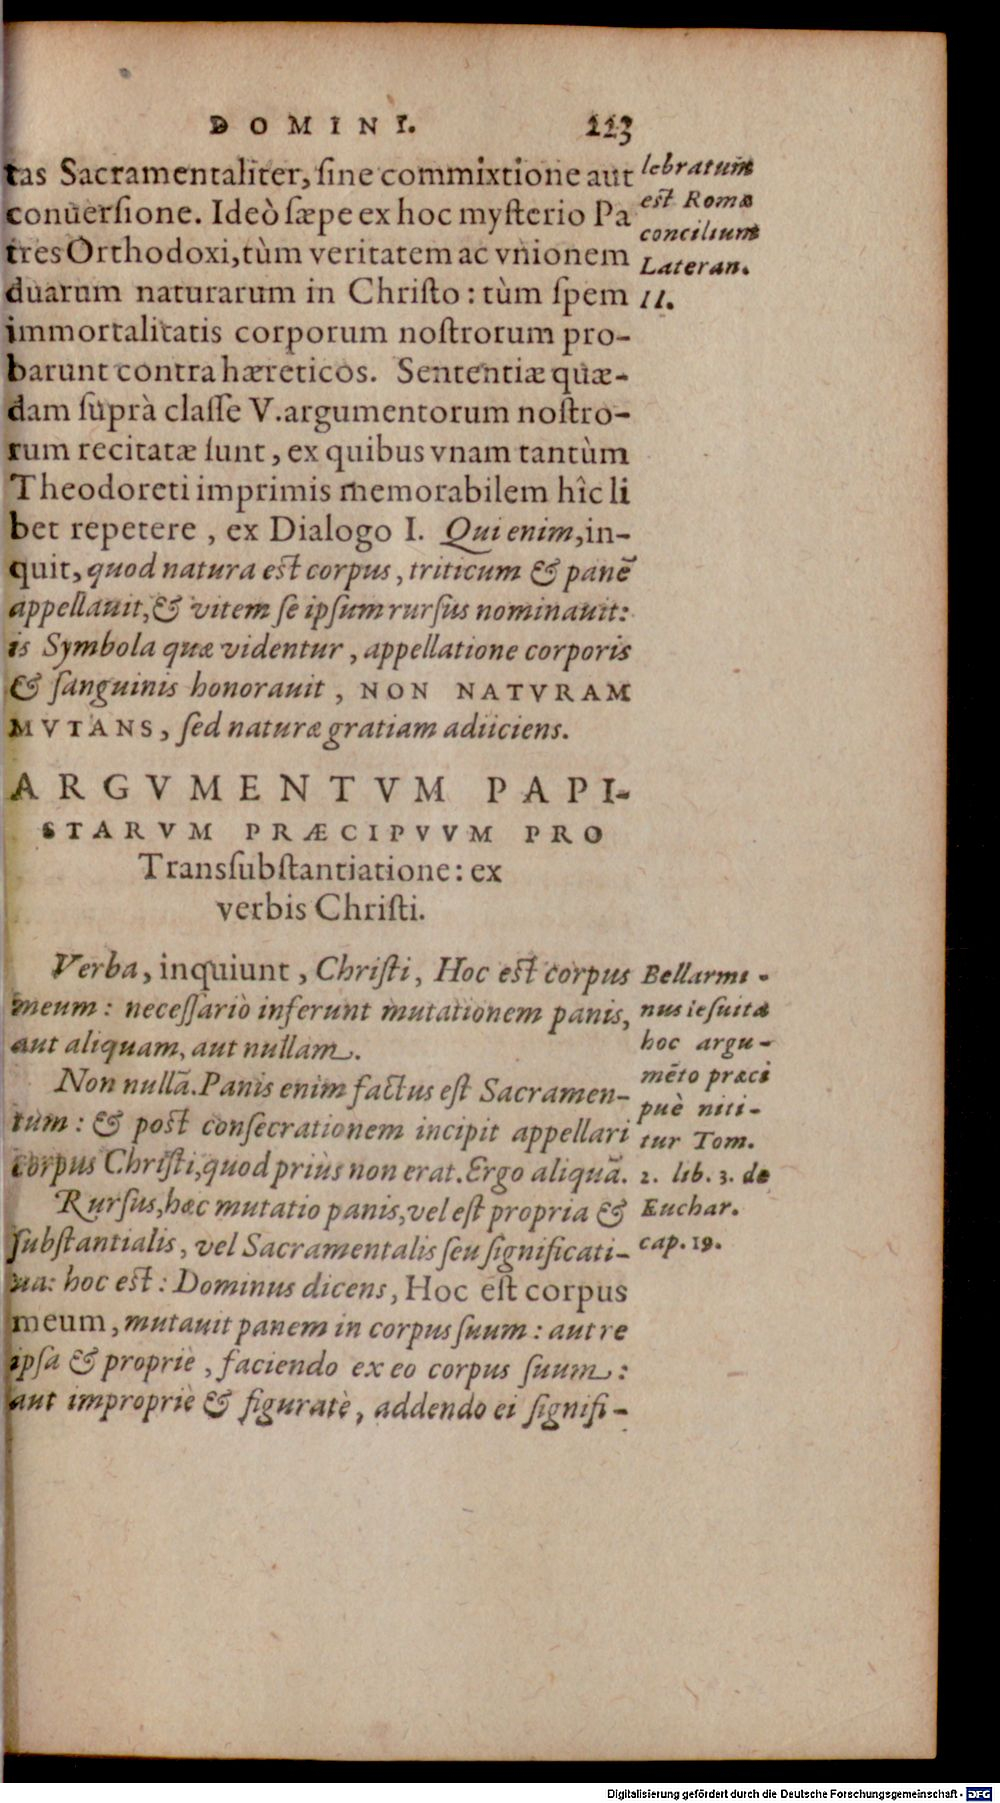 DOMINI. 223
tas Sacramentaliter, ſine commixtione aut
conuerſione. Ideò ſæpe ex hoc myſterio Pa
tres Orthodoxi, tùm veritatem ac vnionem
duarum naturarum in Chriſto: tùm ſpem
immortalitatis corporum noſtrorum pro-
barunt contra hæreticos. Sententiæ quæ-
dam ſuprà claſſe V. argumentorum noſtro-
rum recitatæ ſunt, ex quibus vnam tantùm
Theodoreti imprimis memorabilem hîc li
bet repetere, ex Dialogo I. Qui enim, in-
quit, quod natura eſt corpus, triticum & panē
appellauit, & vitem ſe ipſum rurſus nominauit:
is Symbola quæ videntur, appellatione corporis
& ſanguinis honorauit, NON NATVRAM
MVTANS, ſed naturæ gratiam adiiciens.
lebratum
eſt Romæ
concilium
Lateran.
II.
ARGVMENTVM PAPI-
STARVM PRÆCIPVVM PRO
Transſubſtantiatione: ex
verbis Chriſti.
Verba, inquiunt, Chriſti, Hoc eſt corpus
meum: neceſſariò inferunt mutationem panis,
aut aliquam, aut nullam.
Non nullā. Panis enim factus eſt Sacramen-
tum: & poſt conſecrationem incipit appellari
corpus Chriſti, quod priùs non erat. Ergo aliquā.
Rurſus, hæc mutatio panis, vel eſt propria &
ſubſtantialis, vel Sacramentalis ſeu ſignificati-
ua: hoc eſt: Dominus dicens, Hoc eſt corpus
meum, mutauit panem in corpus ſuum: aut re
ipſa & propriè, faciendo ex eo corpus ſuum:
aut impropriè & figuratè, addendo ei ſignifi-
Bellarmi-
nus ieſuita
hoc argu-
mēto præci
puè niti-
tur Tom.
2. lib. 3. de
Euchar.
cap. 19.
Digitalisierung gefördert durch die Deutsche Forschungsgemeinschaft - DFG